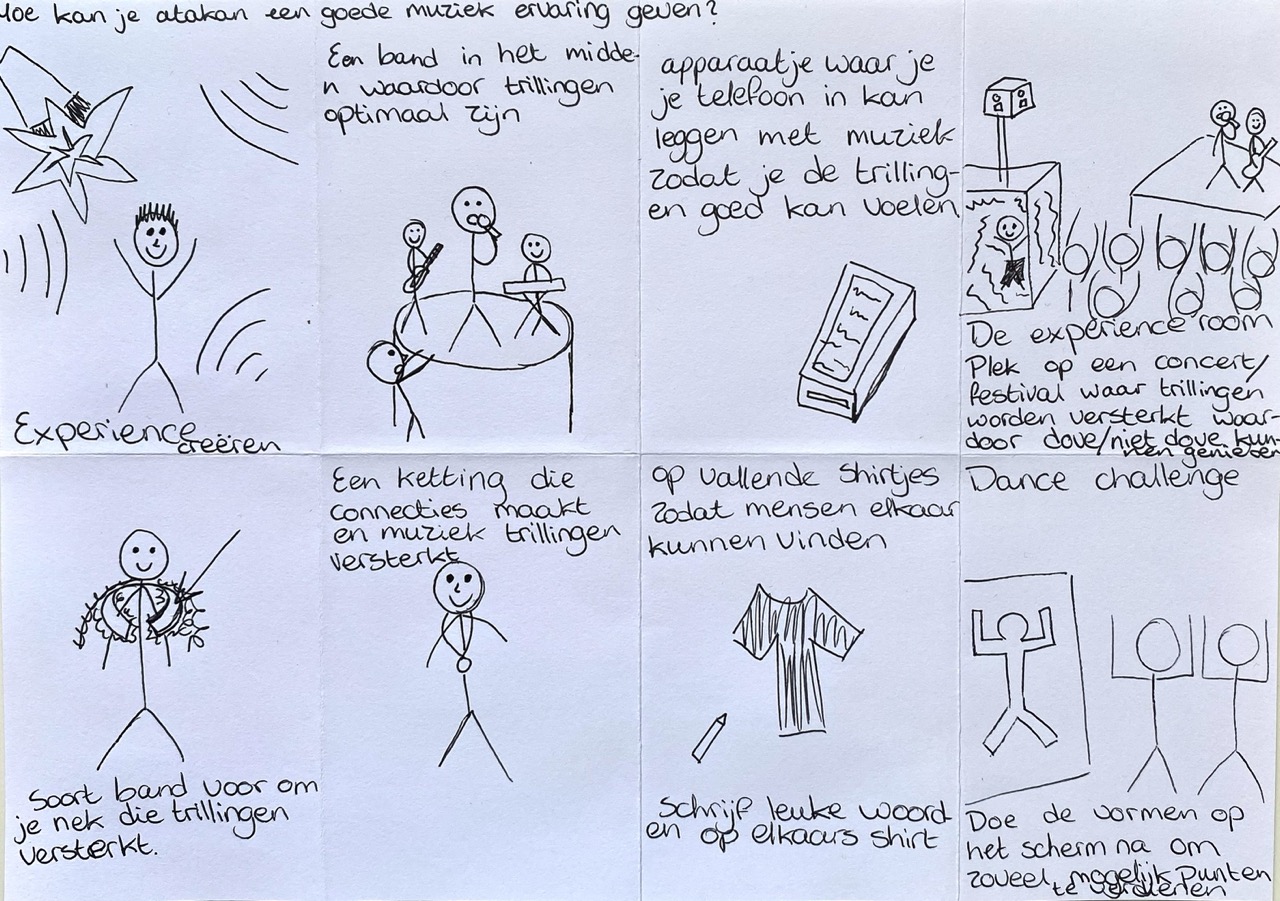 Hoe kan je atakan een goede muziek ervaring geven?
Experience
creëren
Een band in het midde-
n waardoor trillingen
optimaal zijn
apparaatje waar je
je telefoon in kan
leggen met muziek
zodat je de trilling-
en goed kan voelen
De experience room
Plek op een concert/
festival waar trillingen
worden versterkt waar-
door dove/niet dove kun-
nen genieten
Soort band voor om
je nek die trillingen
versterkt.
Een ketting die
connecties maakt
en muziek trillingen
versterkt
op vallende shirtjes
zodat mensen elkaar
kunnen vinden
Schrijf leuke woord
en op elkaars shirt
Dance challenge
Doe de vormen op
het scherm na om
zoveel mogelijk punten
te verdienen